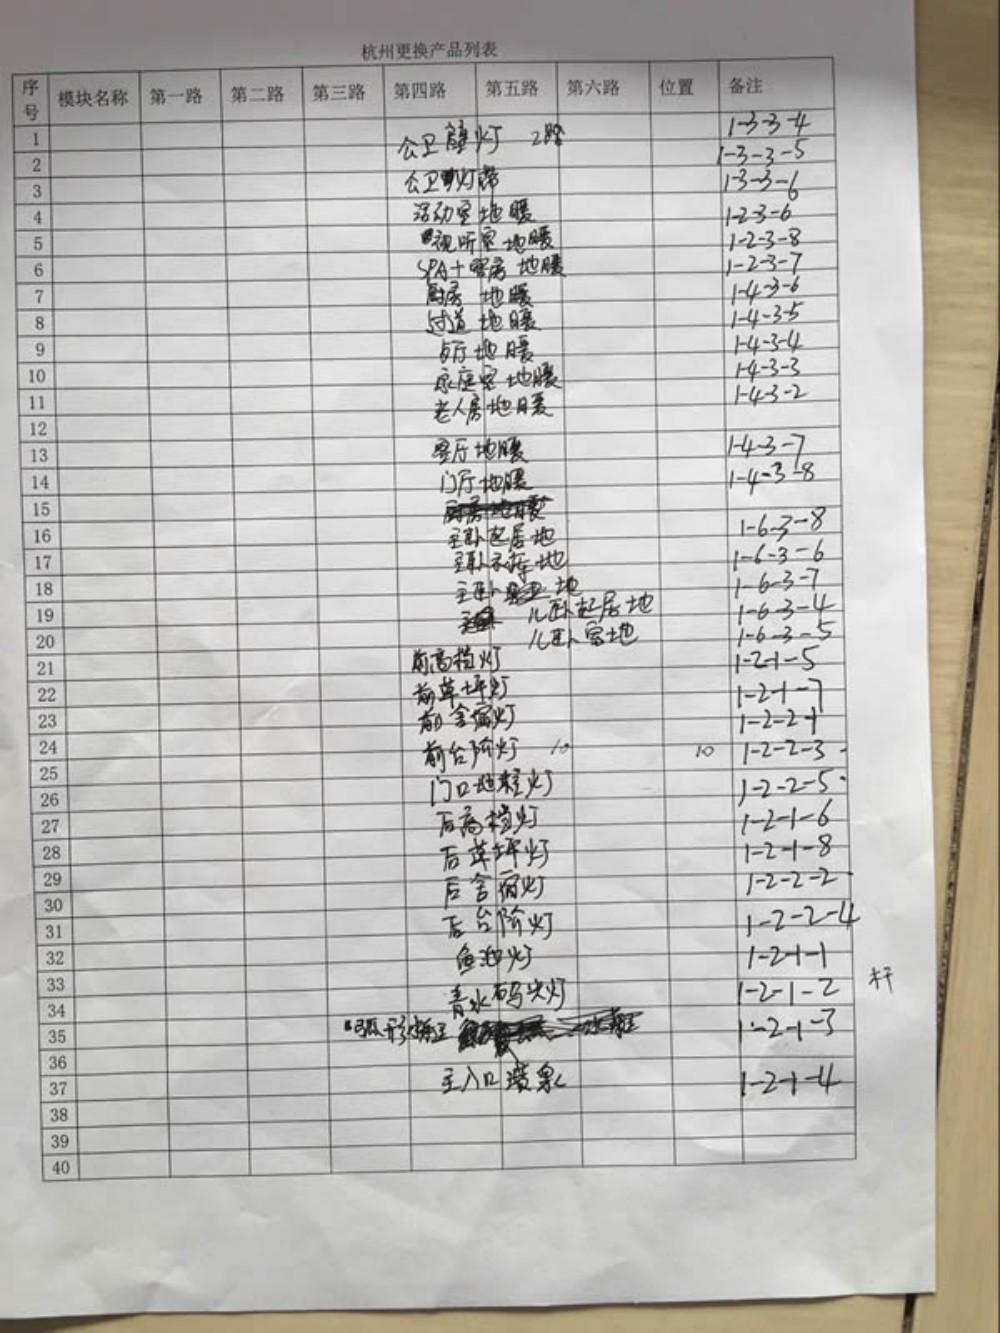 杭州更换产品列表
序号 模块名称 第一路 第二路 第三路 第四路 第五路 第六路 位置 备注
1 公卫壁灯 2路 1-3-3-4
2 1-3-3-5
3 公卫灯带 1-3-3-6
4 活动室地暖 1-2-3-6
5 视听室地暖 1-2-3-8
6 SPA+客房地暖 1-2-3-7
7 厨房地暖 1-4-3-6
8 过道地暖 1-4-3-5
9 地暖 1-4-3-4
10 家庭室地暖 1-4-3-3
11 老人房地暖 1-4-3-2
12
13 客厅地暖 1-4-3-7
14 门厅地暖 1-4-3-8
15 厨房地暖
16 主卧起居地 1-6-3-8
17 主卧 地 1-6-3-6
18 主卧 地 1-6-3-7
19 儿卧起居地 1-6-3-4
20 儿卧 地 1-6-3-5
21 前高 灯 1-2-1-5
22 前草坪灯 1-2-1-7
23 前 灯 1-2-2-1
24 前台阶灯 10 10 1-2-2-3
25
26 门口地柱灯 1-2-2-5
27 后高 灯 1-2-1-6
28 后草坪灯 1-2-1-8
29 后 灯 1-2-2-2
30
31 后台阶灯 1-2-2-4
32 鱼池灯 1-2-1-1
33 1-2-1-2
34 水码头灯
35 弧形 1-2-1-3
36
37 主入口 泉 1-2-1-4
38
39
40